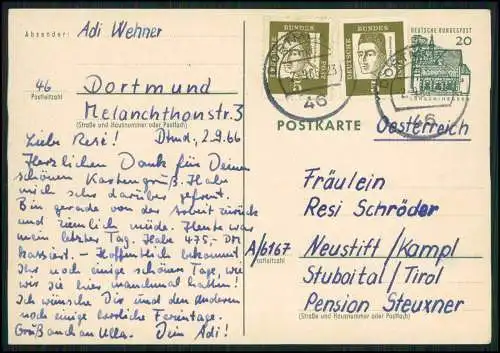 Absender: Adi Wehner
46 Dortmund
Postleitzahl
Melanchthonstr. 3
(Straße und Hausnummer oder Postfach)
Liebe Resi! Dtmd., 2.9.66
Herzlichen Dank für Deinen
schönen Kartengruß. Habe
mich sehr darüber gefreut.
Bin gerade von der Arbeit zurück
und ziemlich müde. Heute war
mein letzter Tag. Habe 475,- DM
kassiert. - Hoffentlich bekommt
Ihr noch einige schöne Tage, wie
wir sie hier manchmal hatten!
Ich wünsche Dir und den anderen
noch einige herrliche Ferientage.
Gruß auch an Ulla. Dein Adi!
DEUTSCHE BUNDESPOST
20
DEUTSCHE BUNDESPOST
5
DEUTSCHE BUNDESPOST
5
46
46
POSTKARTE
Oesterreich
Fräulein
Resi Schröder
A/6167 Neustift/Kampl
Postleitzahl
Stubaital/Tirol
Pension Steuxner
(Straße und Hausnummer oder Postfach)